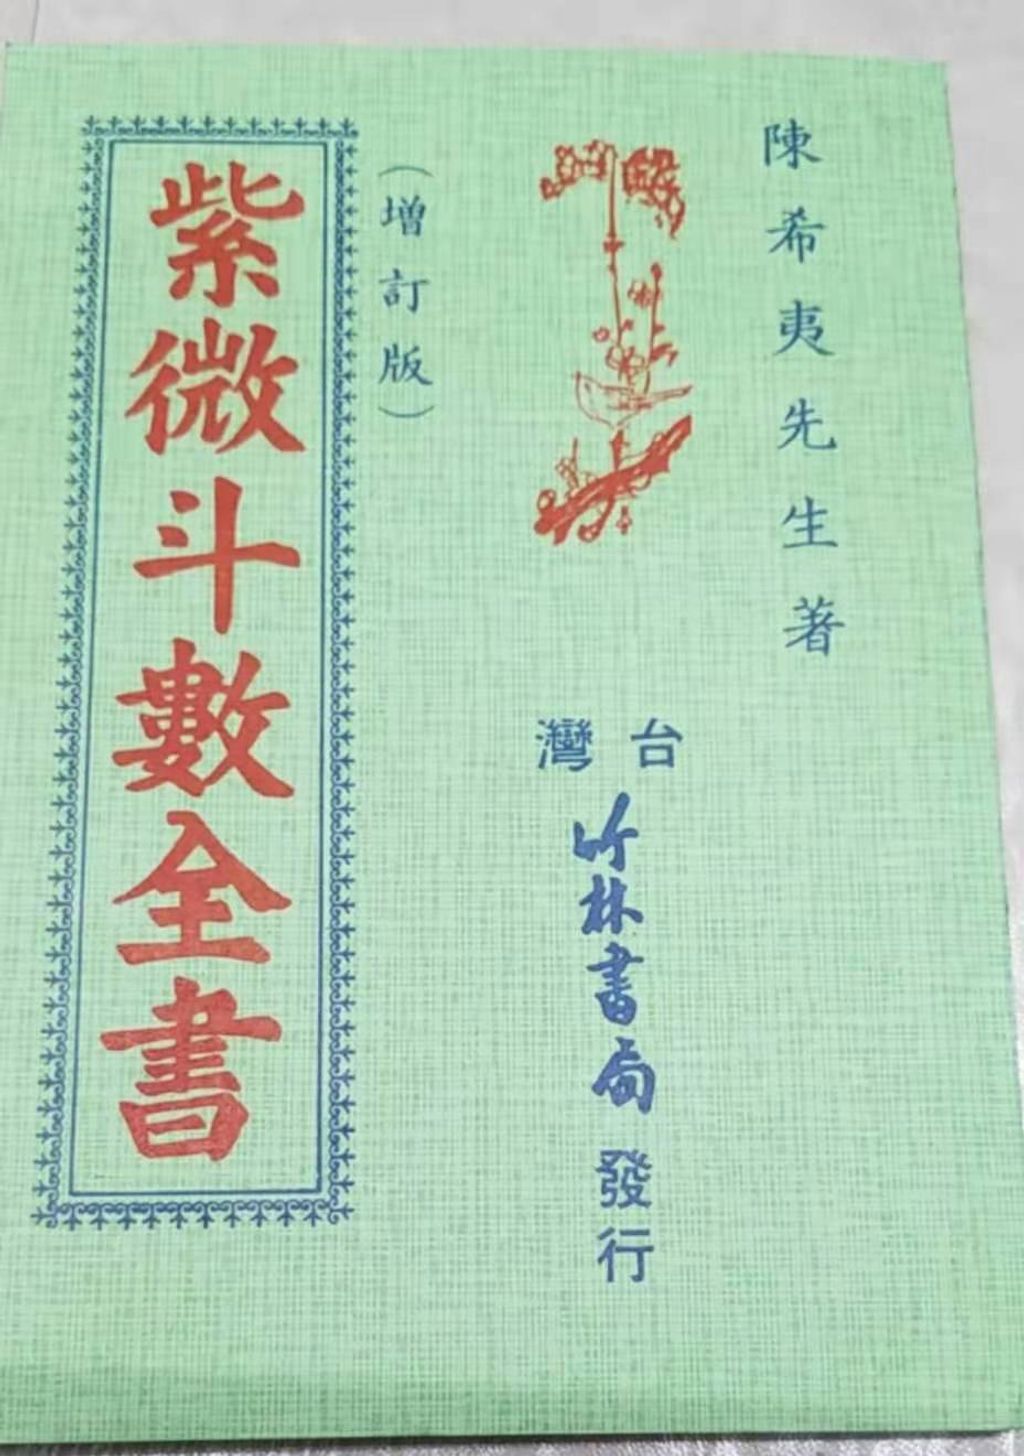 陳希夷先生著
台灣
竹林書局
發行
（增訂版）
紫微斗數全書